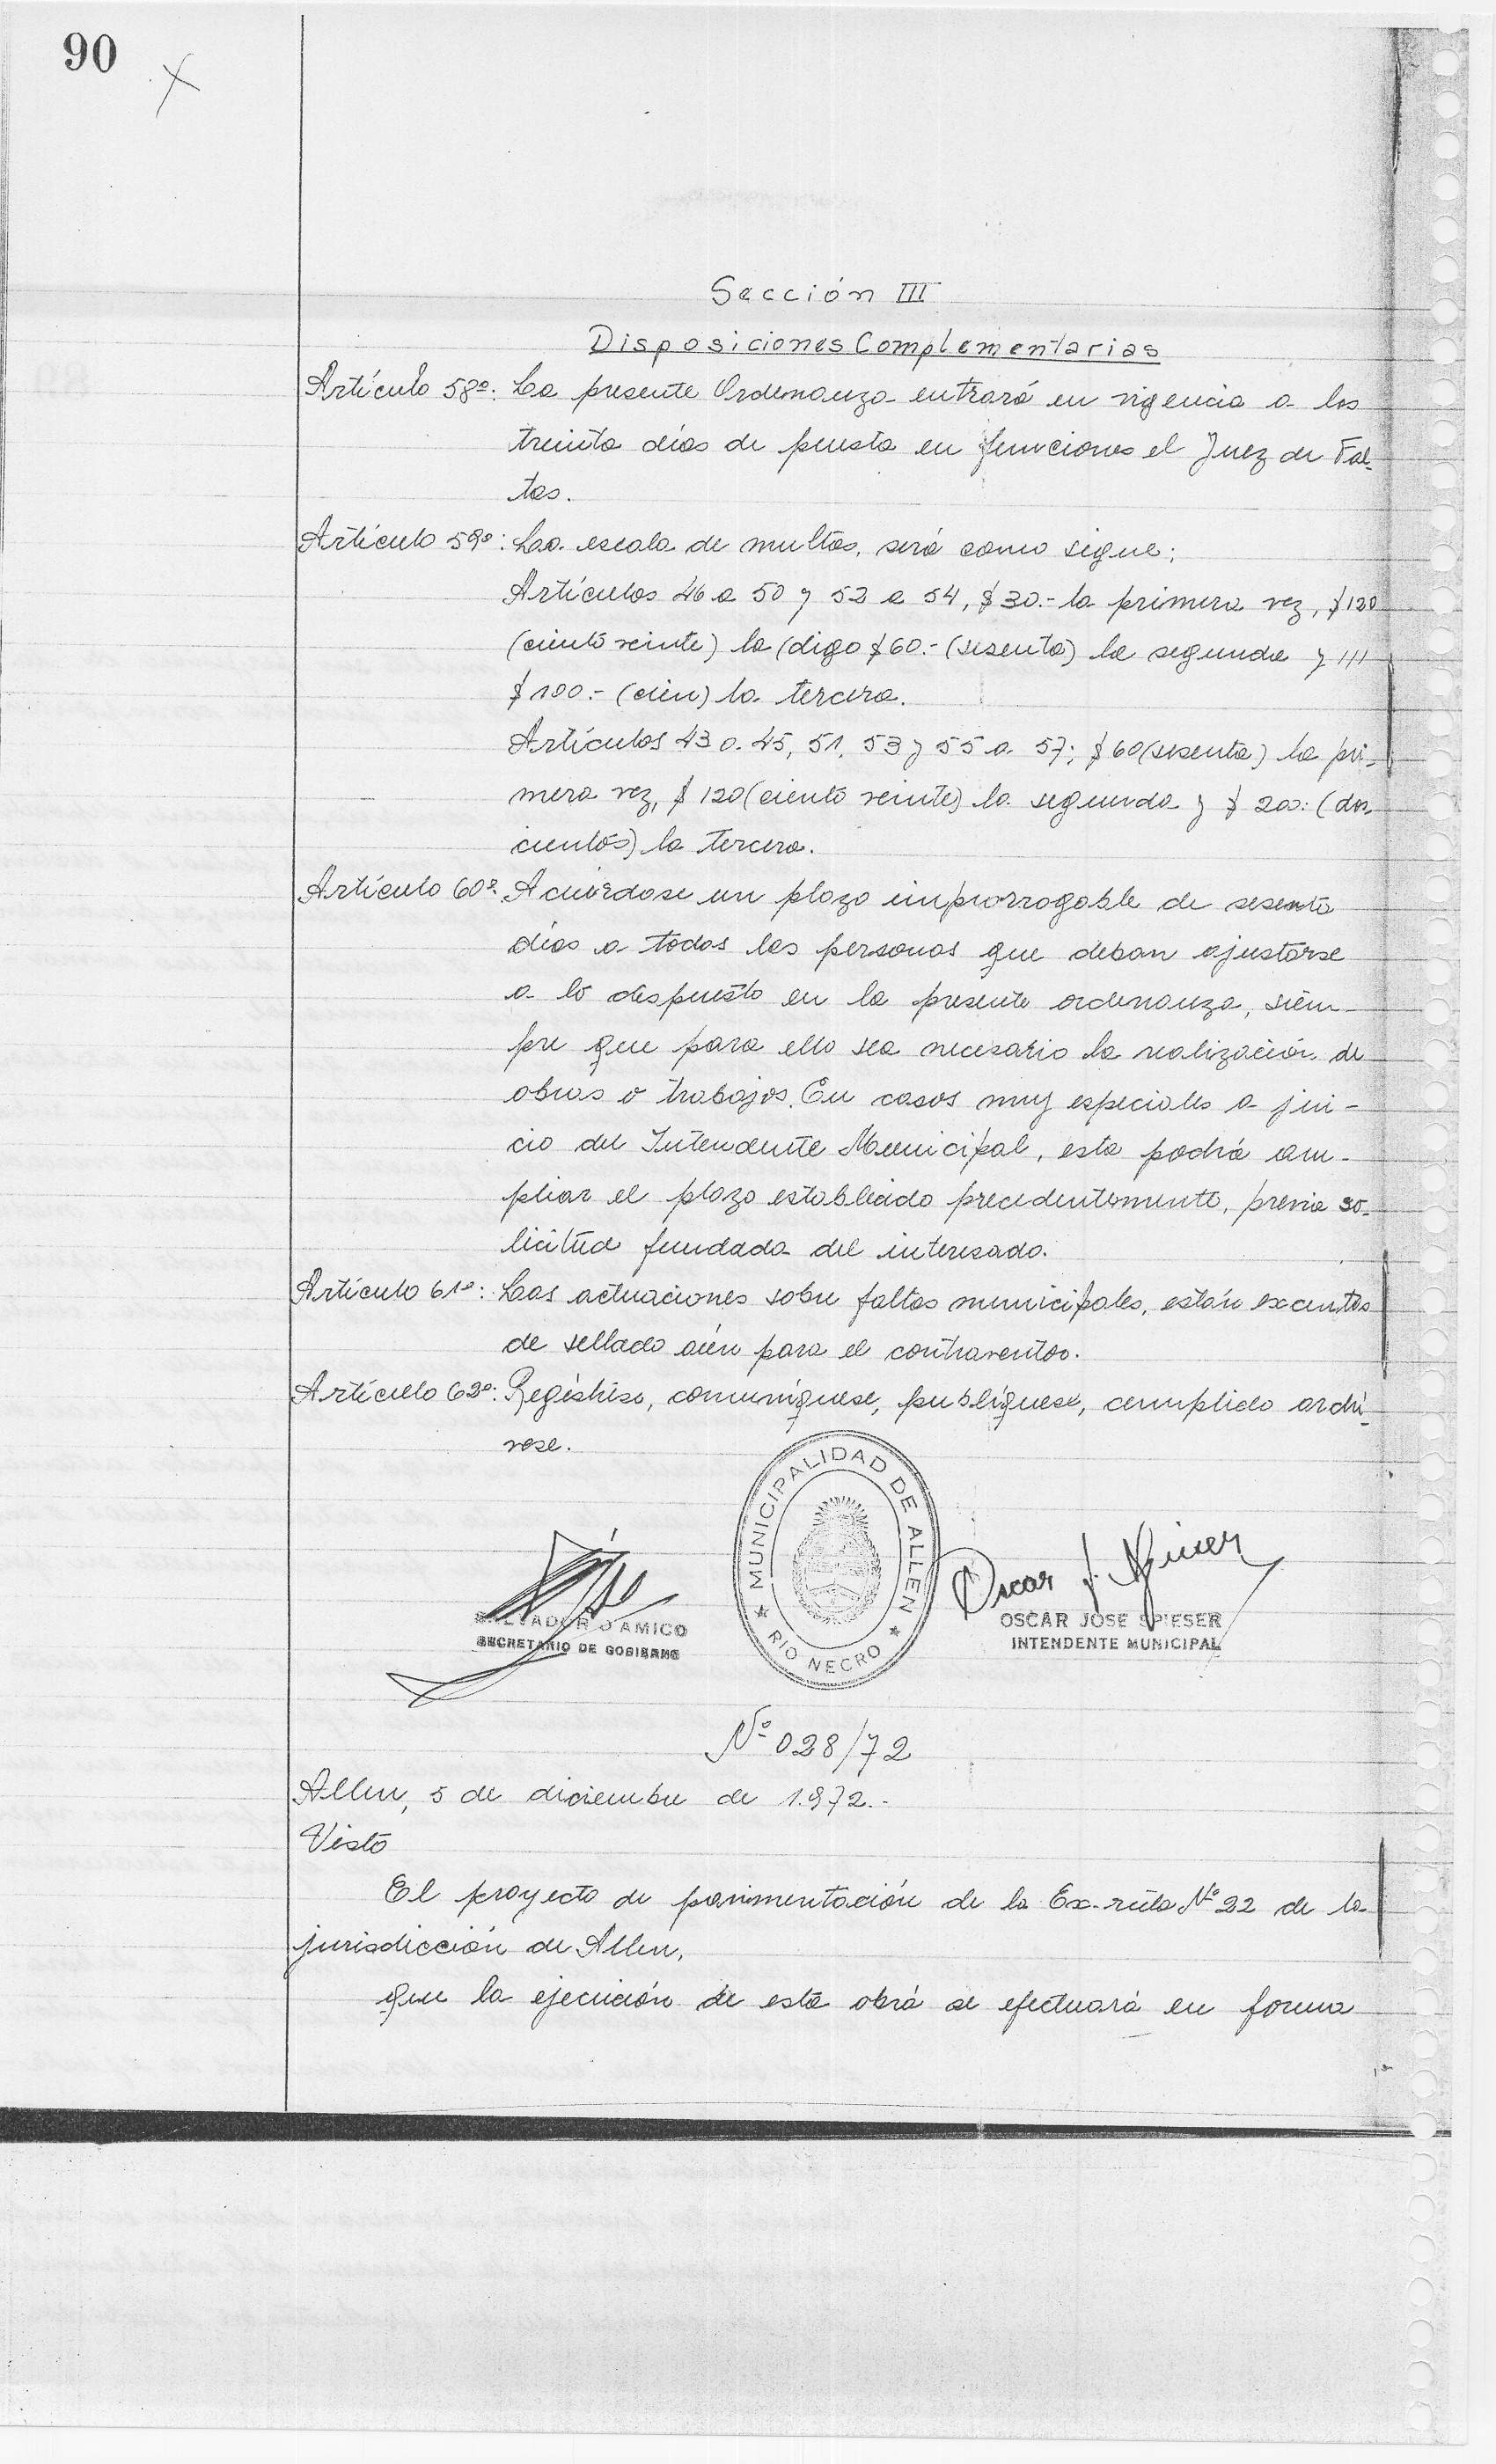 90
Sección III
Disposiciones Complementarias
Artículo 58º: La presente Ordenanza entrará en vigencia a los
treinta días de puesta en funciones el Juez de Fal-
tas.
Artículo 59º: La escala de multas, será como sigue:
Artículos 46 a 50 y 52 a 54, $30.- la primera vez, $120
(ciento veinte) la (digo $60.- (sesenta) la segunda y ///
$100.- (cien) la tercera.
Artículos 43 a 45, 51, 53 y 55 a 57; $60 (sesenta) la pri-
mera vez, $120 (ciento veinte) la segunda y $200: (dos-
cientos) la tercera.
Artículo 60º: Acuérdase un plazo improrrogable de sesenta
días a todas las personas que deban ajustarse
a lo dispuesto en la presente ordenanza, siem-
pre que para ello sea necesario la realización de
obras o trabajos. En casos muy especiales a jui-
cio del Intendente Municipal, esta podrá am-
pliar el plazo establecido precedentemente, previa so-
licitud fundada del interesado.
Artículo 61º: Las actuaciones sobre faltas municipales, están excentas
de sellado aún para el contraventor.
Artículo 62º: Regístrese, comuníquese, publíquese, cumplido archí-
vese.
MUNICIPALIDAD DE ALLEN
RIO NEGRO
Oscar J. Spieser
SALVADOR D'AMICO
SECRETARIO DE GOBIERNO
OSCAR JOSE SPIESER
INTENDENTE MUNICIPAL
Nº 028/72
Allen, 5 de diciembre de 1.972.-
Visto
El proyecto de pavimentación de la Ex-ruta Nº 22 de la
jurisdicción de Allen,
que la ejecución de esta obra se efectuará en forma